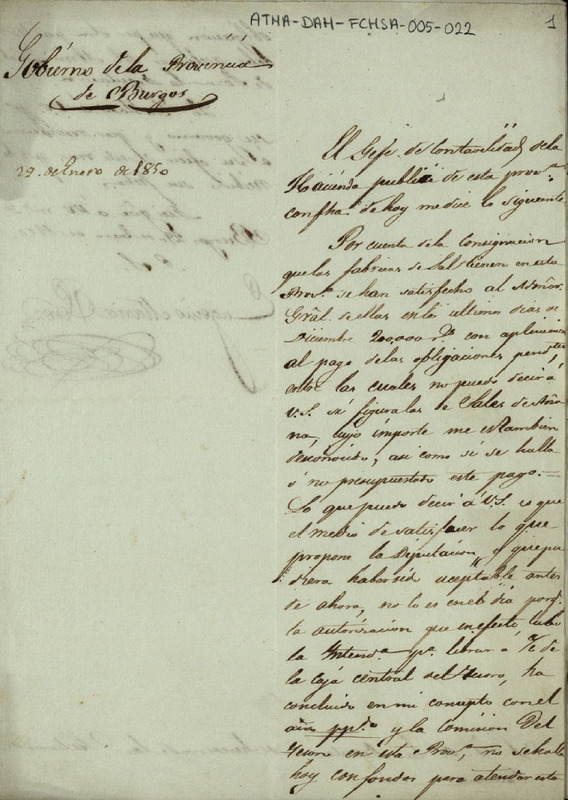 ATHA-DAH-FCHSA-005-022
1
Gobierno de la Provincia
de Burgos
29. de Enero de 1850
El Gefe de Contabilidad de la
Hacienda publica de esta provª
con fha. de hoy me dice lo siguiente
Por cuenta de la consignacion
que las fabricas de Sal tienen en esta
Provª se han satisfecho al Admor.
Gral. de ellas en los ultimos dias de
Diciembre 200,000 rs. con aplicacion
al pago de las obligaciones pendtes
entre las cuales no puedo decir á
V.S. si figura las de Sales de Aña
na, cuyo importe me es tambien
desconocido, asi como si se halla
ó no presupuestado este pago.=
Lo que puedo decir á V.S. es que
el medio de satisfacer lo que
propone la Diputacion, y que pu
diera haber sido aceptable antes
de ahora, no lo es en el dia porq.
la autorizacion que en efecto tubo
la Intendª pª librar á de
la caja central del tesoro, ha
concluido en mi concepto con el
año ppdo y la comision del
tesoro en esta Provª, no se halla
hoy con fondos para atender esta